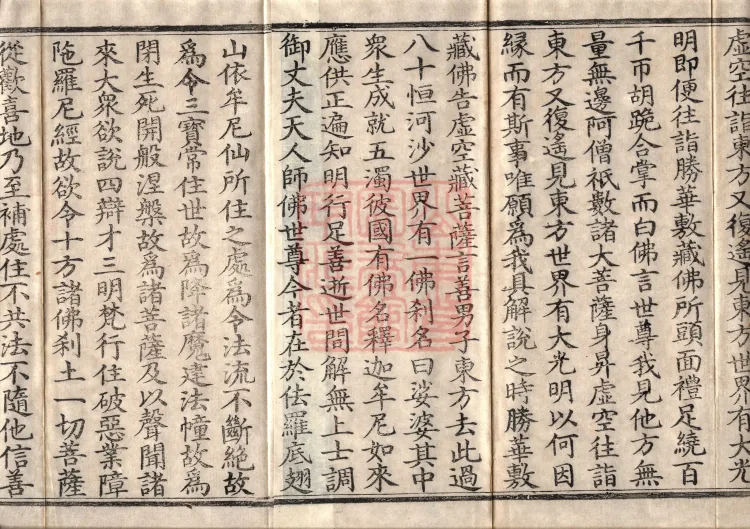 虛空往詣東方又復遙見東方世界有大光
明即便往詣勝華敷藏佛所頭面禮足繞百
千帀胡跪合掌而白佛言世尊我見他方無
量無邊阿僧祇數諸大菩薩身昇虛空往詣
東方又復遙見東方世界有大光明以何因
縁而有斯事唯願爲我具解說之時勝華敷
藏佛告虛空藏菩薩言善男子東方去此過
八十恒河沙世界有一佛刹名曰娑婆其中
衆生成就五濁彼國有佛名釋迦牟尼如來
應供正遍知明行足善逝世間解無上士調
御丈夫天人師佛世尊今者在於佉羅底翅
山依牟尼仙所住之處爲令法流不斷絶故
爲令三寶常住世故爲降諸魔建法幢故爲
閉生死開般涅槃故爲諸菩薩及以聲聞諸
來大衆欲說四辯才三明梵行住破惡業障
陁羅尼經故欲令十方諸佛刹土一切菩薩
從歡喜地乃至補處住不共法不隨他信善